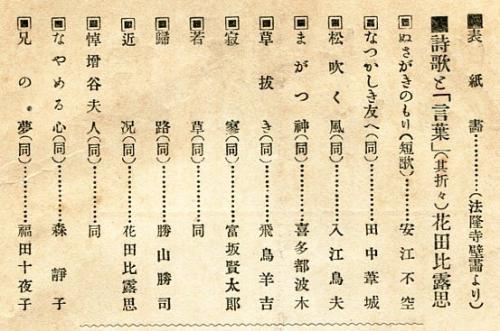 表紙畵………(法隆寺壁畵より)
詩歌と「言葉」(其折々)花田比露思
ぬさがきのもり(短歌)………安江不空
なつかしき友へ(同)………田中葦城
松吹く風(同)………入江鳥夫
まがつ神(同)………喜多都波木
草拔き(同)………飛鳥羊吉
寂寥(同)………富坂賢太郎
若草(同)………同
歸路(同)………勝山勝司
近况(同)………花田比露思
悼増谷夫人(同)………同
なやめる心(同)………森靜子
兄の夢(同)………福田十夜子